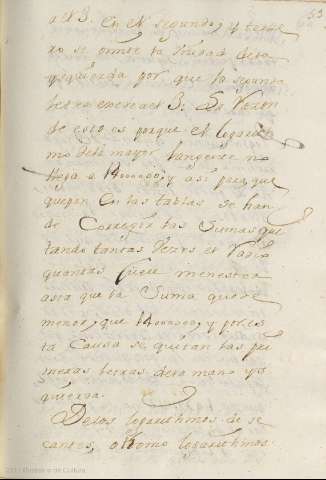 al 3. en el segundo, y terce
ro se omite la Unidad de la
ysquierda por que la segunda
letra excede al 3. La razon
de esto es porque el logarith
mo del mayor tangente no
llega a y asi para que
quepan en las tablas se han
de Corregir las Sumas qui
tando tantas vezes el Radio
quantas fuere menester
asta que la Suma quede
menor, que y por es
ta Causa se quitan las pri
meras letras de la mano yz
quierda.
De los logarithmos de se
cantes, o Tomo logarithmos
53